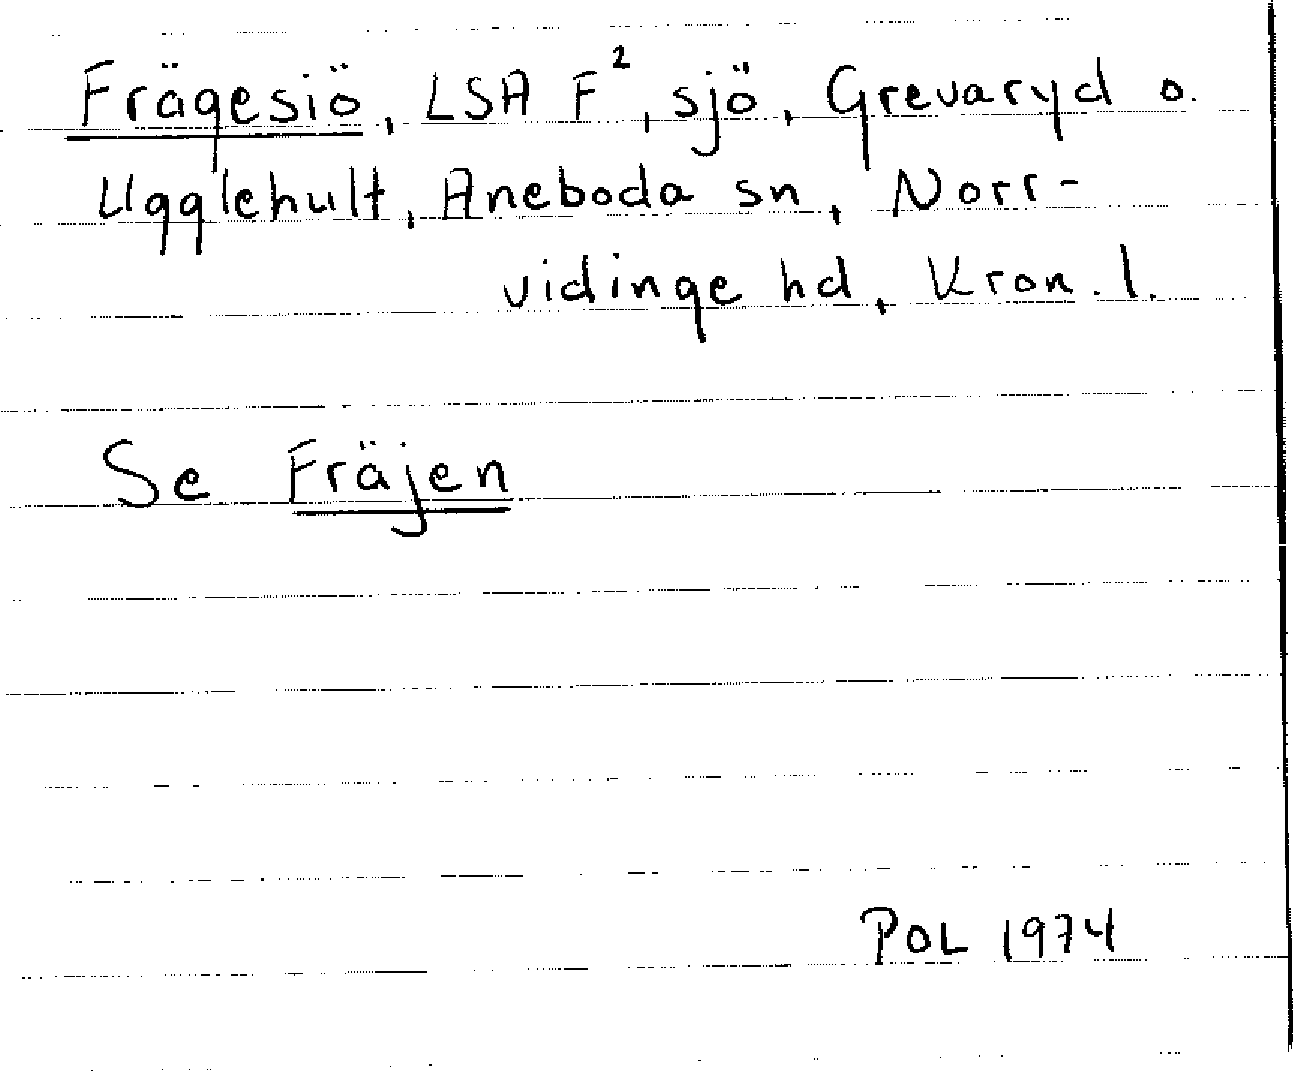 Frägesiö, LSA F², sjö, Grevaryd o.
Ugglehult, Aneboda sn, Norr-
vidinge hd, Kron. l.
Se Fräjen
POL 1974